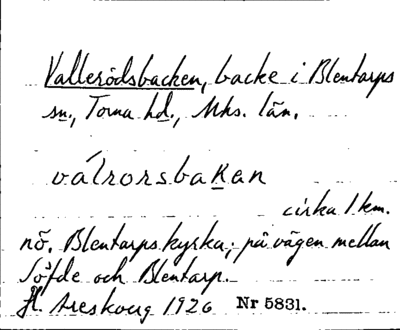 Vallerödsbacken, backe i Blentarps
sn., Torna hd., Mhs. län.
válrorsbakan
cirka 1 km.
nö. Blentarps kyrka; på vägen mellan
Söfde och Blentarp.
Hl. Areskoug 1926 Nr 5831.